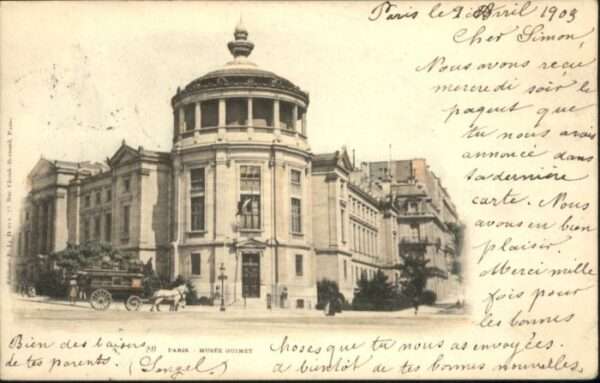 Paris le 2 Avril 1903
Cher Simon,
Nous avons reçu
mercredi soir le
paquet que
tu nous avais
annoncé dans
ta dernière
carte. Nous
avons eu bien
plaisir.
Merci mille
fois pour
les bonnes
choses que tu nous as envoyées.
a bientôt de tes bonnes nouvelles.
Bien des baisers
de tes parents.
PARIS - MUSÉE GUIMET